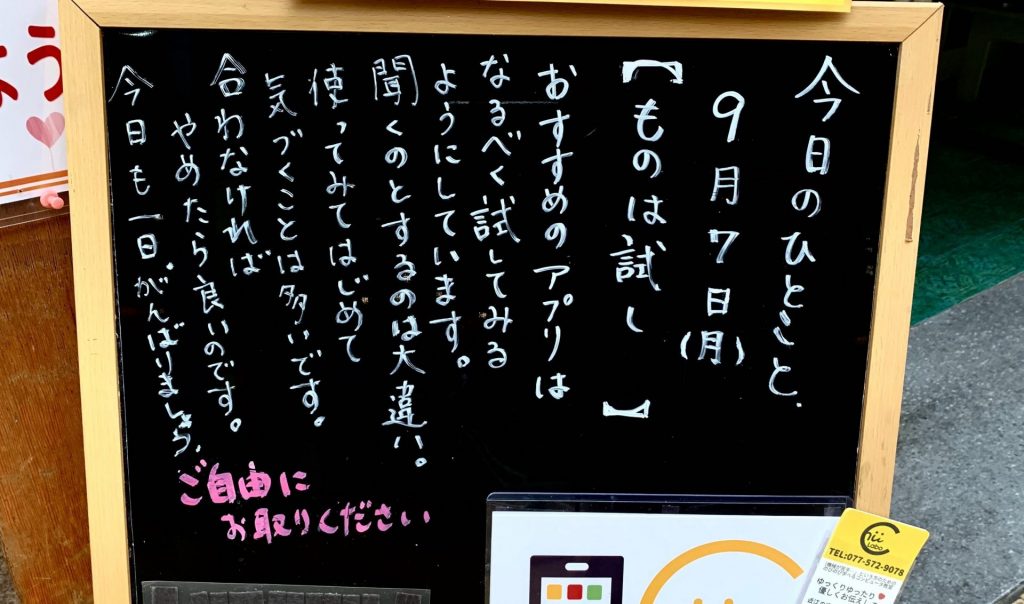 今日のひとこと.
9月7日(月)
【ものは試し】
おすすめのアプリは
なるべく試してみる
ようにしています。
聞くのとするのは大違い。
使ってみてはじめて
気づくことは多いです。
合わなければ
やめたら良いのです。
今日も一日がんばりましょう.
ご自由に
お取りください
よう
Labo
TEL:077-572-9078
ゆっくりゆったり
優しくお伝えし